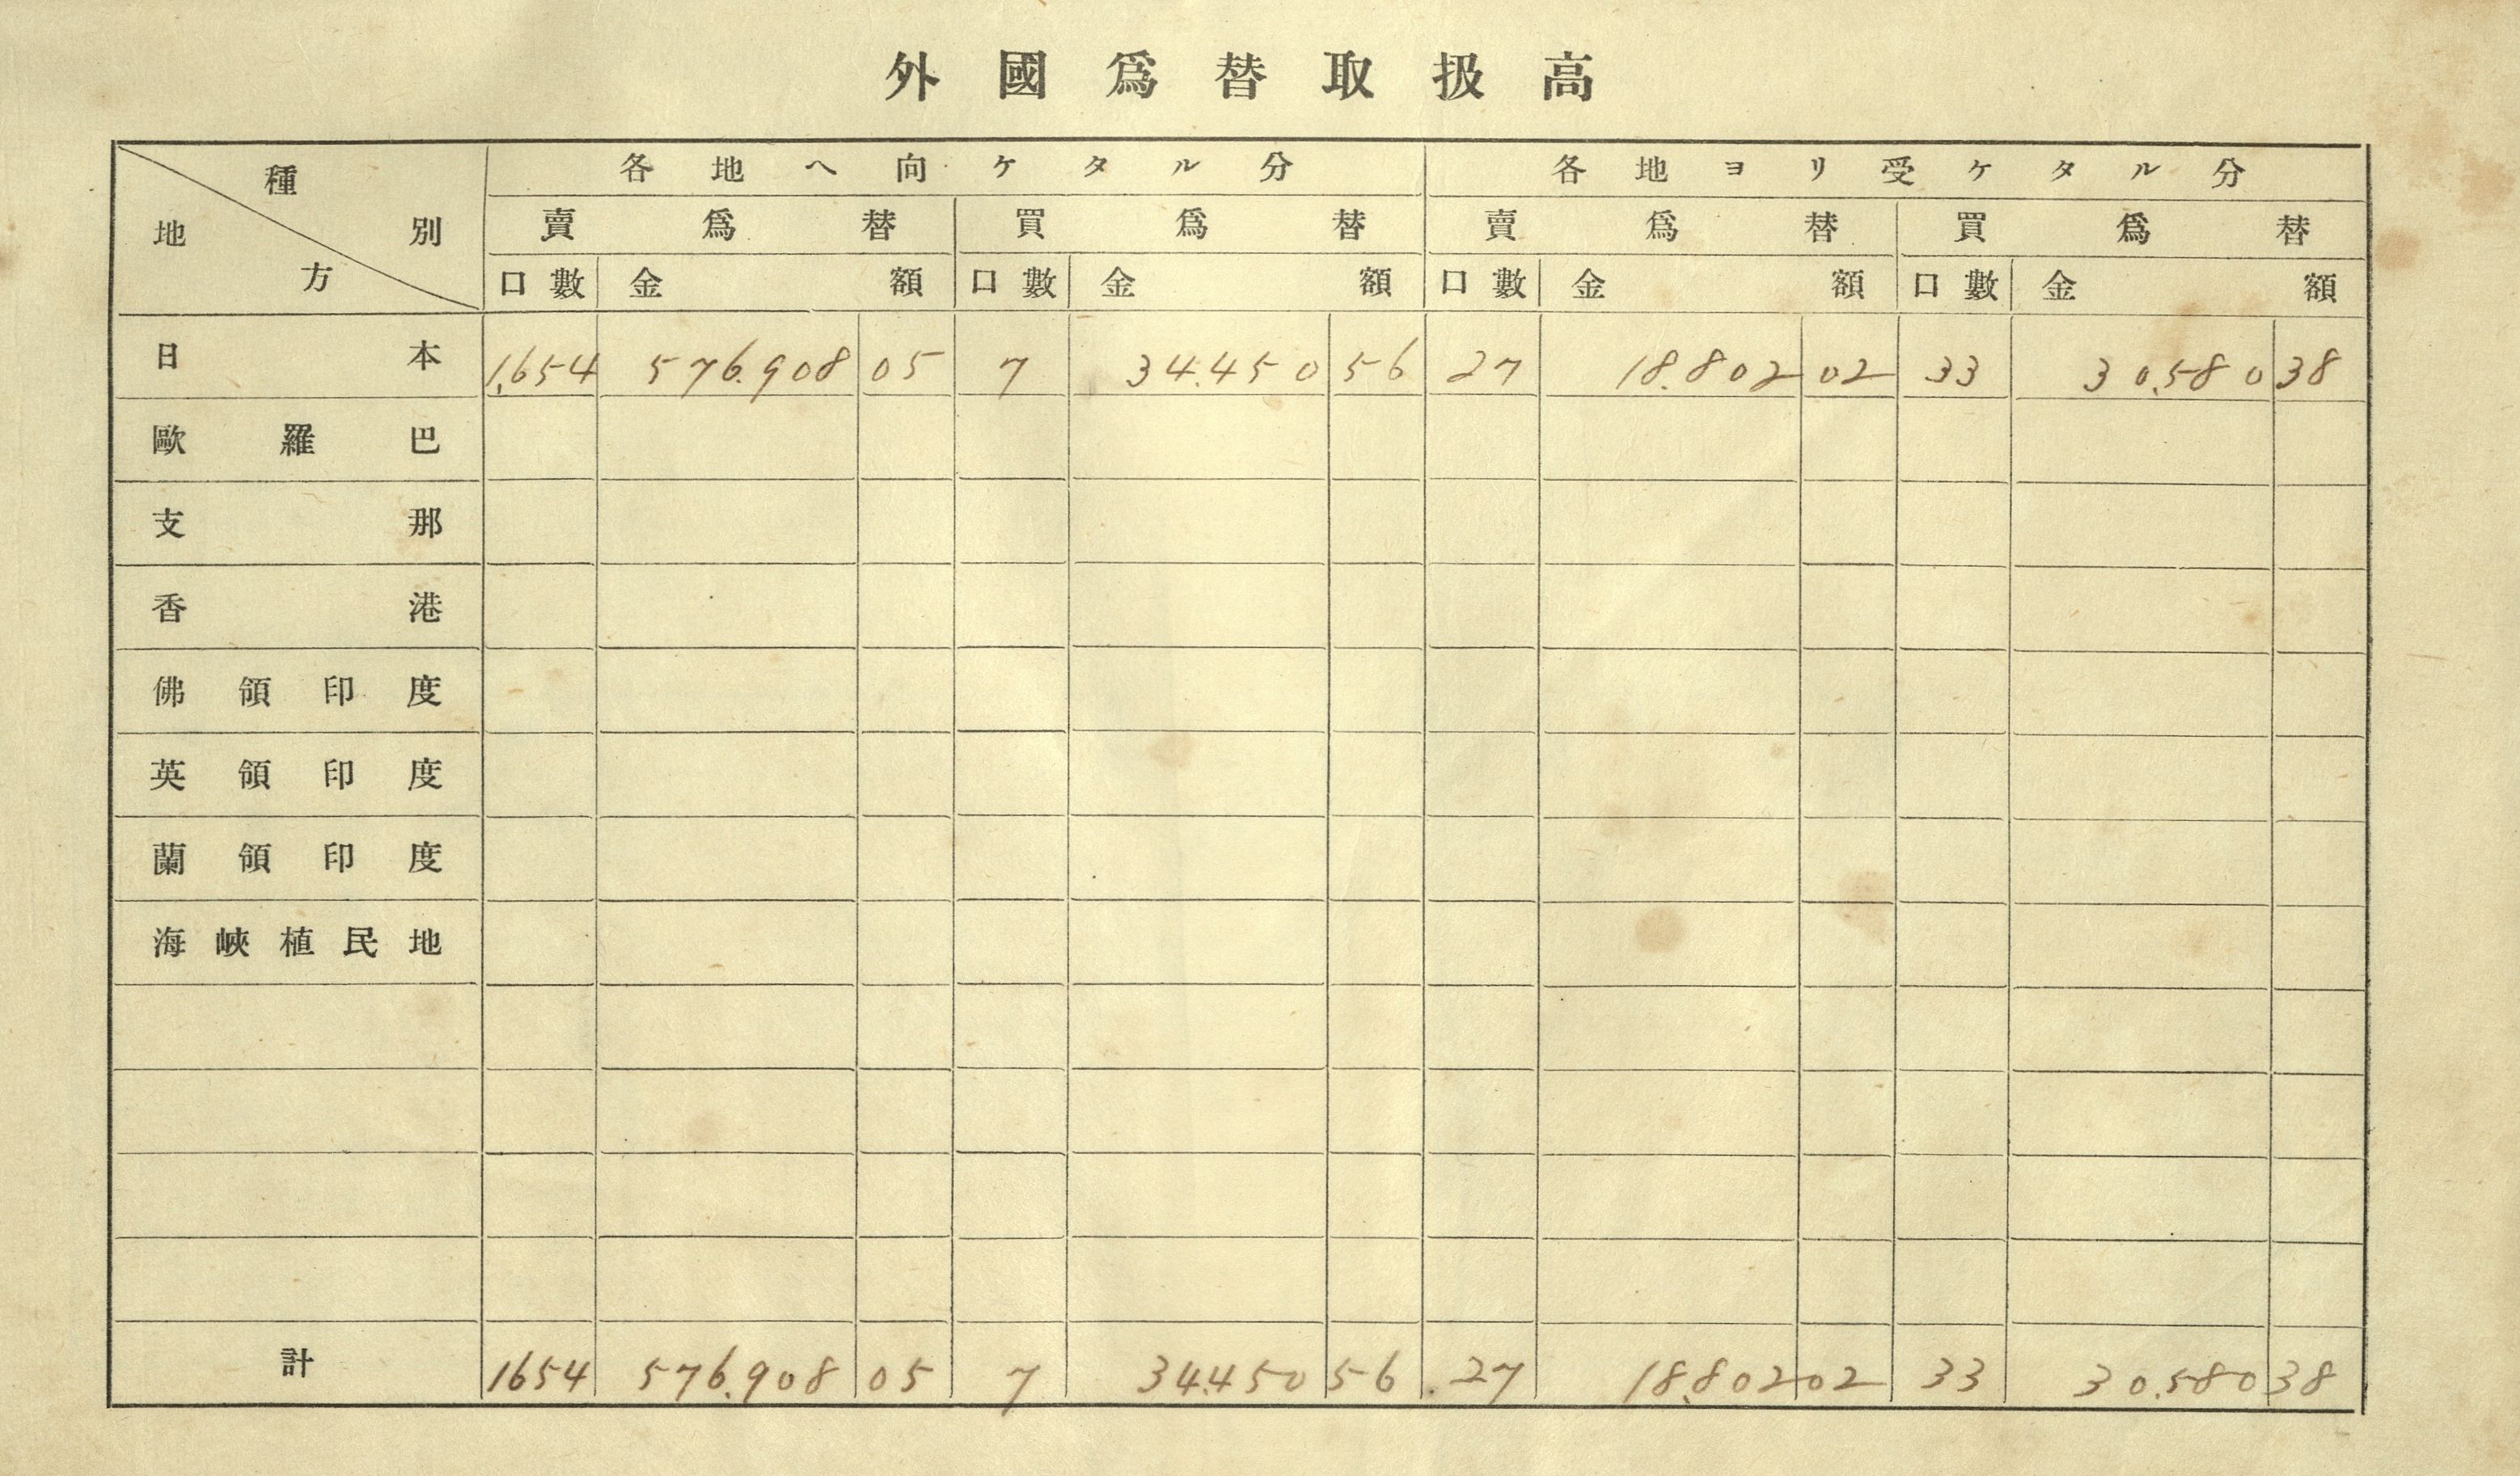 外國爲替取扱高
種別 地方 各地ヘ向ケタル分 各地ヨリ受ケタル分
賣爲替 買爲替 賣爲替 買爲替
口數 金額 口數 金額 口數 金額 口數 金額
日本 1,654 576.908 05 7 34.450 56 27 18.802 02 33 30.580 38
歐羅巴
支那
香港
佛領印度
英領印度
蘭領印度
海峽植民地
計 1654 576.908 05 7 34.450 56 27 18.802 02 33 30.580 38